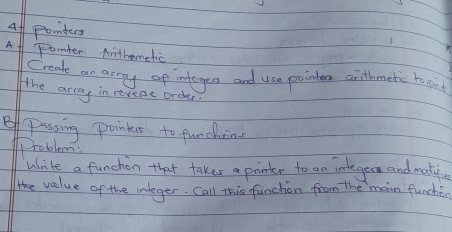 4 Pointers
A Pointer Arithemetic
Create an array of integers and use pointers arithmetic to print
the array in reverse order.
B Passing pointers to functions
Problem:
Write a function that takes a pointer to an integers and modifies
the value of the integer. Call this function from the main function